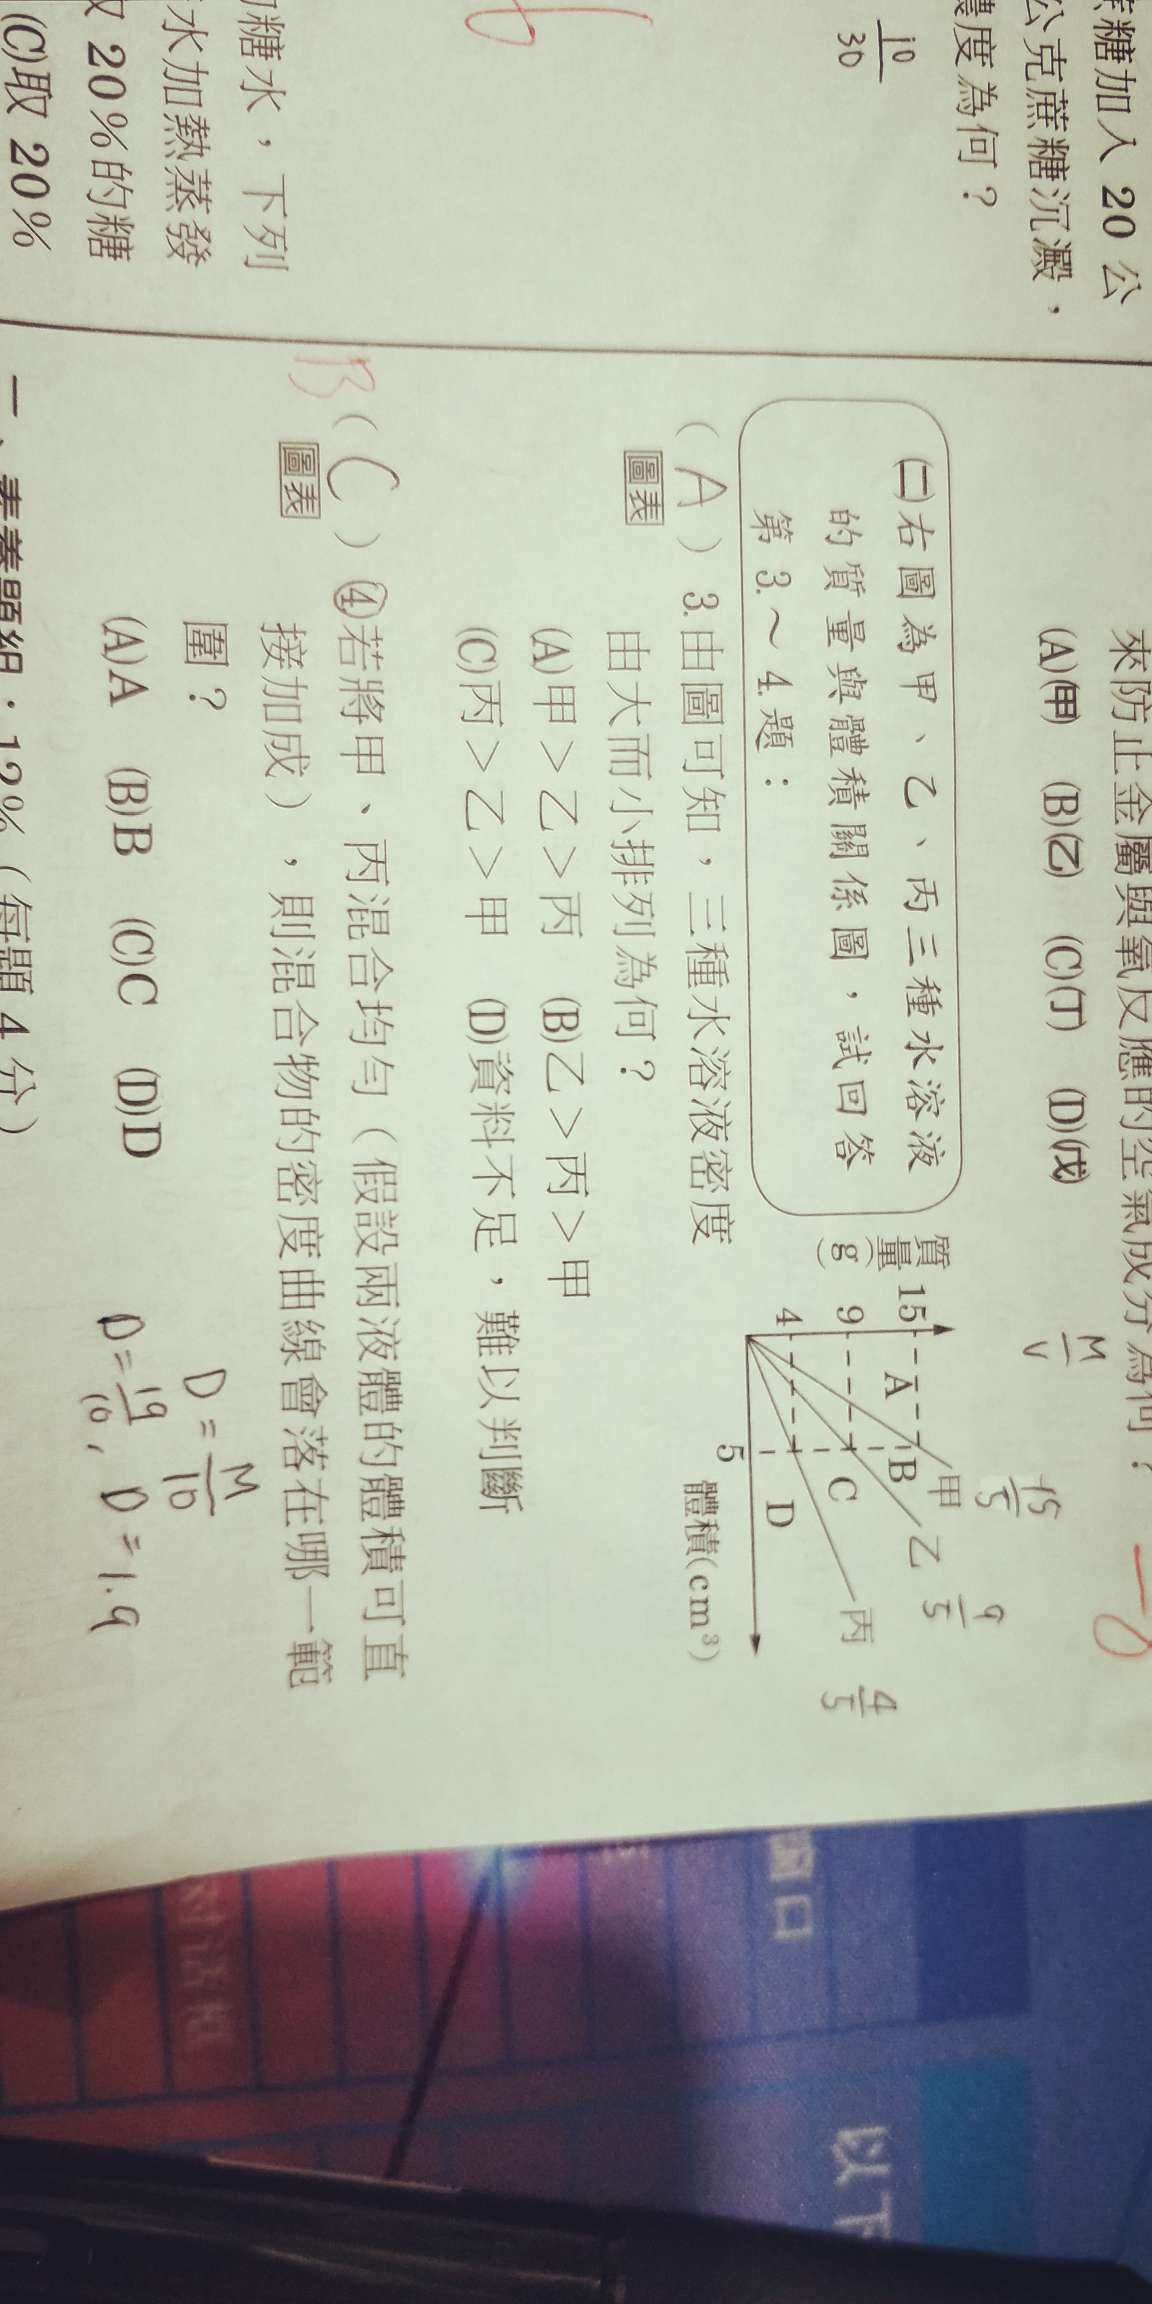 蔗糖加入 20 公
公克蔗糖沉澱，
濃度為何？
10
30
糖水，下列
水加熱蒸發
取 20%的糖
(C)取 20%
來防止金屬與氧反應的空氣成分為何？
(A)(甲) (B)(乙) (C)(丁) (D)(戊)
M
V
(二)右圖為甲、乙、丙三種水溶液
的質量與體積關係圖，試回答
第 3.～4.題：
質量(g)
15
9
4
5
體積(cm³)
A
B
C
D
甲
乙
丙
15
5
9
5
4
5
( A ) 3.由圖可知，三種水溶液密度
圖表 由大而小排列為何？
(A)甲＞乙＞丙 (B)乙＞丙＞甲
(C)丙＞乙＞甲 (D)資料不足，難以判斷
B ( C ) ④若將甲、丙混合均勻（假設兩液體的體積可直
圖表 接加成），則混合物的密度曲線會落在哪一範
圍？
(A)A (B)B (C)C (D)D
D=M/10
D=19/10, D=1.9
一、素養題組：12%（每題 4 分）
窗口
对话框
以下